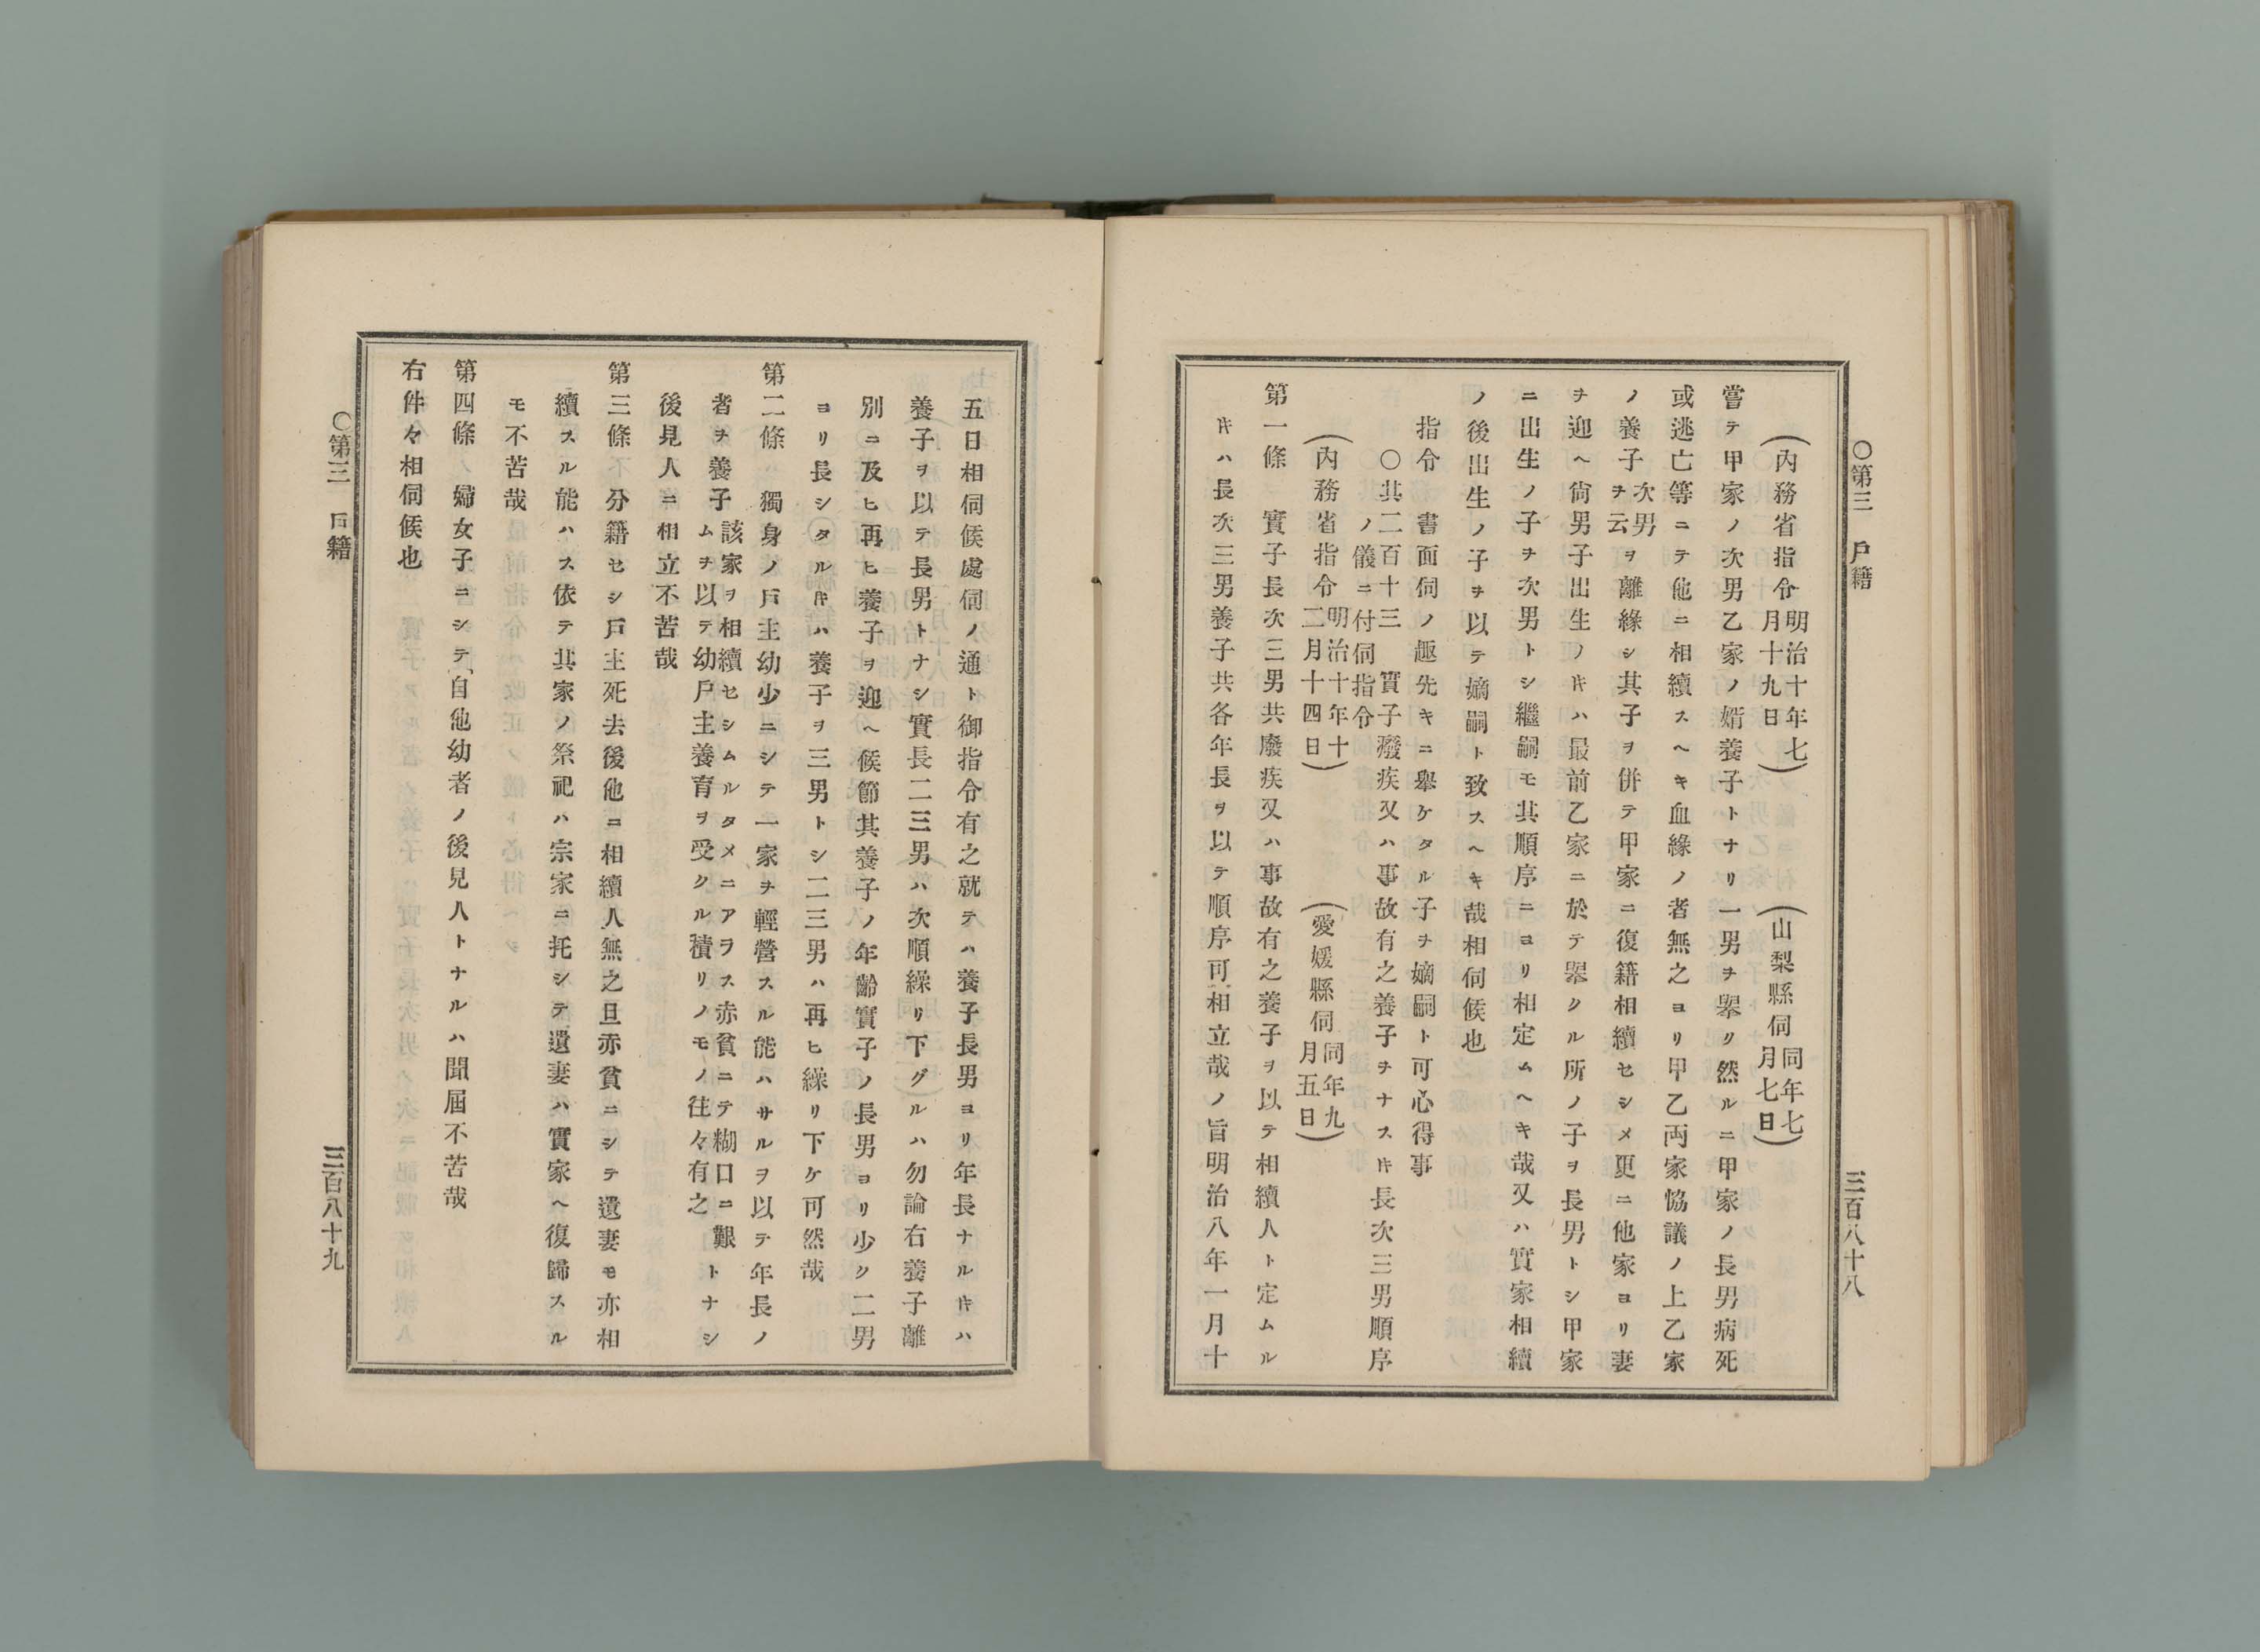 ○第三　戸籍　三百八十八
(內務省指令明治十年七月十九日)　(山梨縣伺同年七月七日)
嘗テ甲家ノ次男乙家ノ婿養子トナリ一男ヲ擧リ然ルニ甲家ノ長男病死
或逃亡等ニテ他ニ相續スヘキ血緣ノ者無之ヨリ甲乙両家恊議ノ上乙家
ノ養子次男ヲ云ヲ離緣シ其子ヲ併テ甲家ニ復籍相續セシメ更ニ他家ヨリ妻
ヲ迎ヘ尙男子出生ノ𪜈ハ最前乙家ニ於テ擧クル所ノ子ヲ長男トシ甲家
ニ出生ノ子ヲ次男トシ繼嗣モ其順序ニヨリ相定ムヘキ哉又ハ實家相續
ノ後出生ノ子ヲ以テ嫡嗣ト致スヘキ哉相伺候也
指令　書面伺ノ趣先キニ擧ケタル子ヲ嫡嗣ト可心得事
○其二百十三　實子癈疾又ハ事故有之養子ヲナス𪜈長次三男順序
ノ儀ニ付伺指令
(內務省指令明治十年十二月十四日)　(愛媛縣伺同年九月五日)
第一條　實子長次三男共廢疾又ハ事故有之養子ヲ以テ相續人ト定ムル
𪜈ハ長次三男養子共各年長ヲ以テ順序可相立哉ノ旨明治八年一月十
五日相伺候處伺ノ通ト御指令有之就テハ養子長男ヨリ年長ナル𪜈ハ
養子ヲ以テ長男トナシ實長二三男ハ次順繰リ下グルハ勿論右養子離
別ニ及ヒ再ヒ養子ヲ迎ヘ候節其養子ノ年齡實子ノ長男ヨリ少ク二男
ヨリ長シタル𪜈ハ養子ヲ三男トシ二三男ハ再ヒ繰リ下ケ可然哉
第二條　獨身ノ戸主幼少ニシテ一家ヲ輕營スル能ハサルヲ以テ年長ノ
者ヲ養子該家ヲ相續セシムルタメニアラス赤貧ニテ糊口ニ艱ムヲ以テ幼戸主養育ヲ受クル積リノモノ往々有之トナシ
後見人ニ相立不苦哉
第三條　分籍セシ戸主死去後他ニ相續人無之且赤貧ニシテ遺妻モ亦相
續スル能ハス依テ其家ノ祭祀ハ宗家ニ托シテ遺妻ハ實家ヘ復歸スル
モ不苦哉
第四條　婦女子ニシテ自他幼者ノ後見人トナルハ聞屆不苦哉
右件々相伺候也
○第三　戸籍　三百八十九